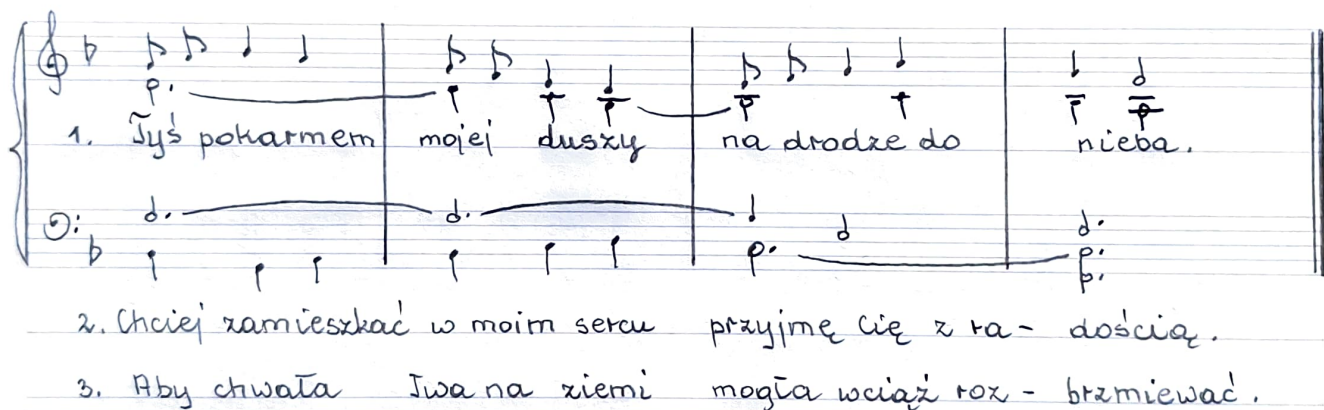 1. Tyś pokarmem mojej duszy na drodze do nieba.
2. Chciej zamieszkać w moim sercu przyjmę Cię z ra- dością.
3. Aby chwała Twa na ziemi mogła wciąż roz- brzmiewać.